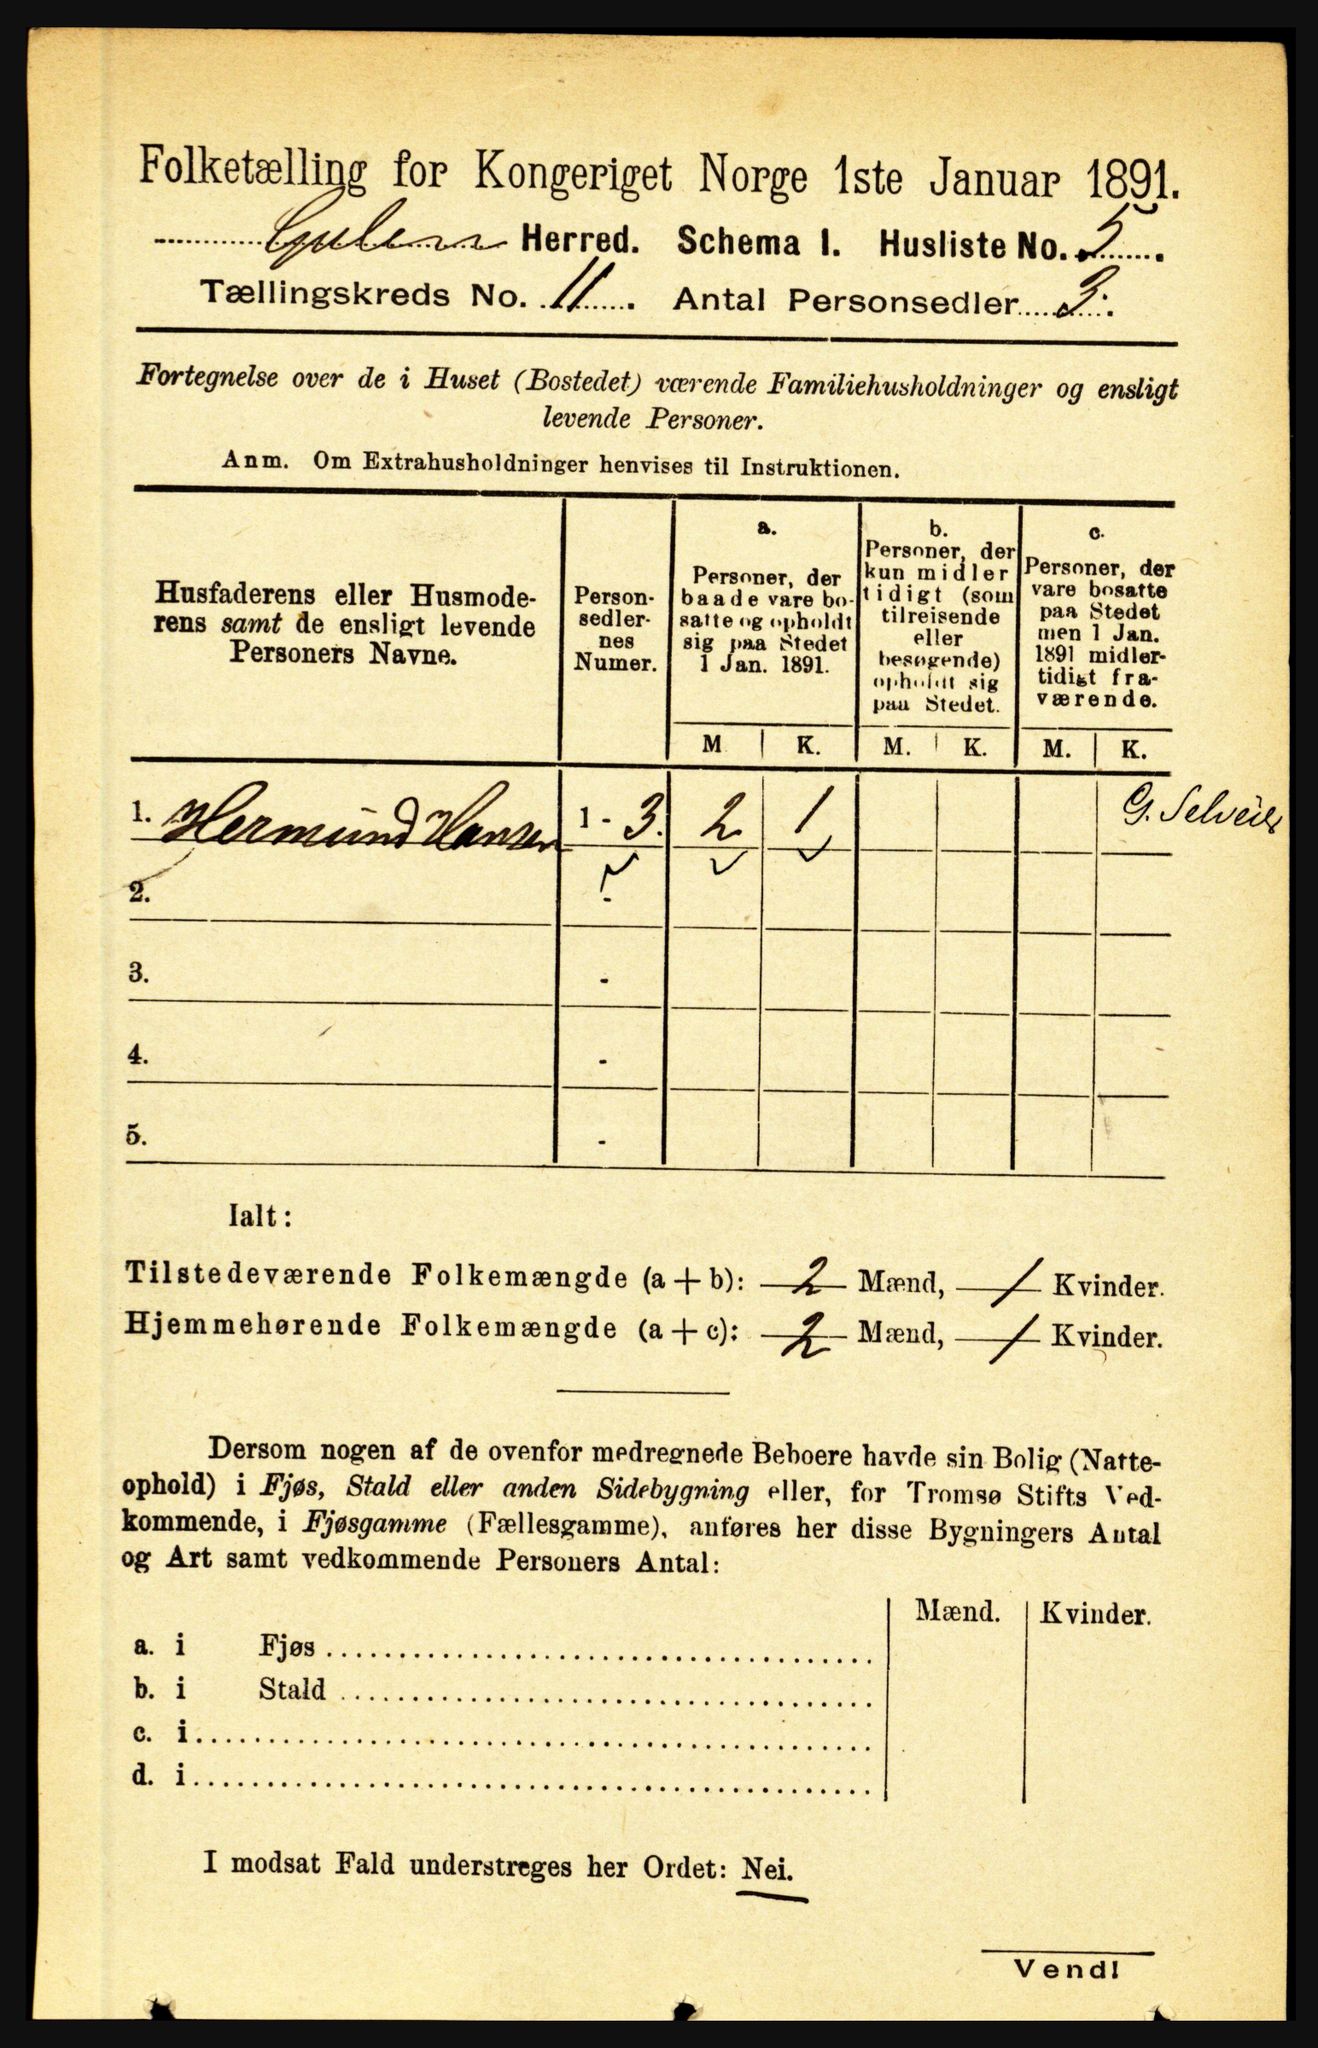 Folketælling for Kongeriget Norge 1ste Januar 1891.
Gulen Herred. Schema I. Husliste No. 5.
Tællingskreds No. 11. Antal Personsedler 3.
Fortegnelse over de i Huset (Bostedet) værende Familiehusholdninger og ensligt
levende Personer.
Anm. Om Extrahusholdninger henvises til Instruktionen.
Husfaderens eller Husmode-
rens samt de ensligt levende
Personers Navne.
Person-
sedler-
nes
Numer.
a.
Personer, der
baade vare bo-
satte og opholdt
sig paa Stedet
1 Jan. 1891.
b.
Personer, der
kun midler
tidigt (som
tilreisende
eller
besøgende)
opholdt sig
paa Stedet.
c.
Personer, der
vare bosatte
paa Stedet
men 1 Jan.
1891 midler-
tidigt fra-
værende.
M K. M. K. M. K.
1. Hermund Hansen 1 - 3. 2 1 G.
2. -
3. -
4. -
5. -
Ialt:
Tilstedeværende Folkemængde (a + b): 2 Mænd, 1 Kvinder.
Hjemmehørende Folkemængde (a + c): 2 Mænd, 1 Kvinder.
Dersom nogen af de ovenfor medregnede Beboere havde sin Bolig (Natte-
ophold) i Fjøs, Stald eller anden Sidebygning eller, for Tromsø Stifts Ved-
kommende, i Fjøsgamme (Fællesgamme), anføres her disse Bygningers Antal
og Art samt vedkommende Personers Antal:
Mænd. Kvinder.
a. i Fjøs
b. i Stald
c. i
d. i
I modsat Fald understreges her Ordet: Nei.
Vend!